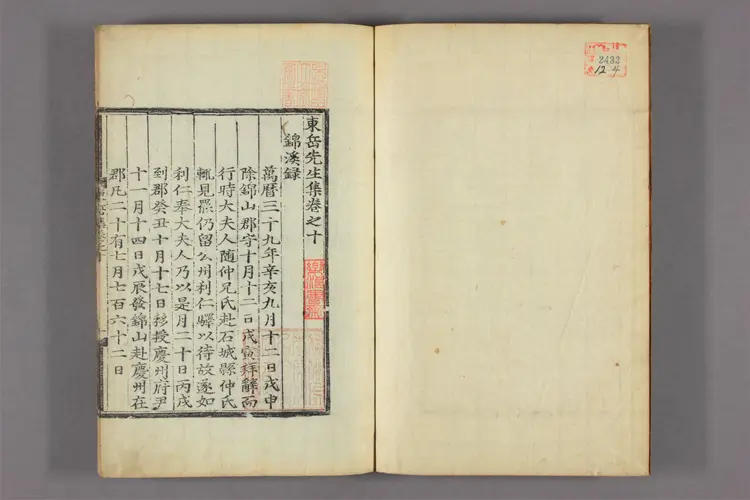 東岳先生集卷之十
錦溪録
萬曆三十九年辛亥九月十二日戊申
除錦山郡守十月十二日戊寅拜辭而
行時大夫人隨仲兄氏赴石城縣仲氏
輒見罷仍留公州利仁驛以待故遂如
利仁奉大夫人乃以是月二十日丙戌
到郡癸丑十月十七日移授慶州府尹
十一月十四日戊辰發錦山赴慶州在
郡凡二十有七月七百六十二日
2432
12 4